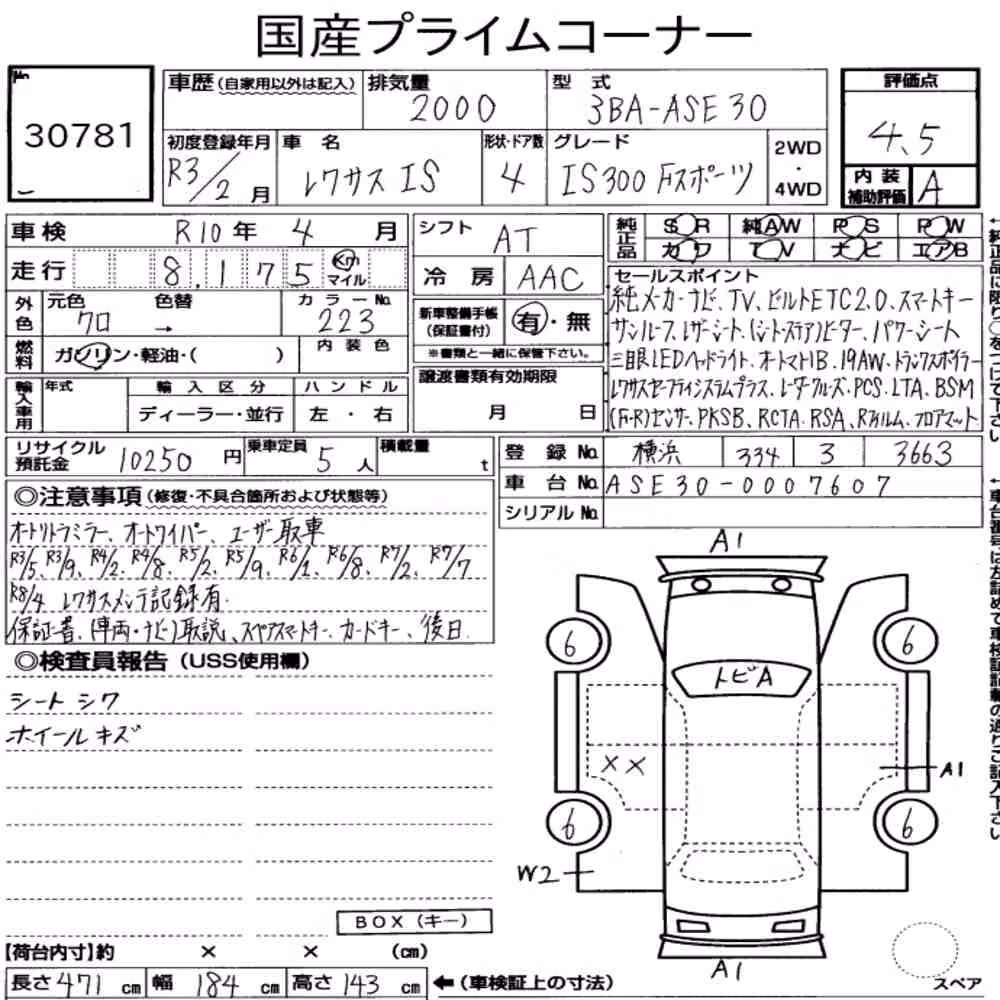 国産プライムコーナー
No.
30781
車歴(自家用以外は記入)
排気量
2000
型 式
3BA-ASE30
評価点
4.5
初度登録年月
R3/2 月
車 名
レクサス IS
形状・ドア数
4
グレード
IS300 Fスポーツ
2WD
・
4WD
内 装
補助評価
A
車検 R10 年 4 月
走行 8,175 Km マイル
シフト AT
冷 房 AAC
純正品
S R 純AW P S P W
カワ T V ナビ エアB
外色
元色 クロ
色替 →
カラーNo. 223
燃料 ガソリン・軽油・( )
内 装 色
新車整備手帳
(保証書付)
有・無
※書類と一緒に保管下さい。
セールスポイント
純メーカーナビ、TV、ビルトETC2.0、スマートキー
サンルーフ、レザーシート、(シート・ステア)ヒーター、パワーシート
三眼LEDヘッドライト、オートマHB、19AW、トランクスポイラー
レクサスセーフティシステムプラス、レーダークルーズ、PCS、LTA、BSM
(F・R)センサー、PKSB、RCTA、RSA、Rフィルム、フロアマット
輸入車用
年式
輸 入 区 分
ディーラー・並行
ハ ン ド ル
左 ・ 右
譲渡書類有効期限
月 日
リサイクル
預託金
10250 円
乗車定員
5 人
積載量
t
登 録 No. 横浜 334 3 3663
車 台 No. ASE30-0007607
シリアル No.
◎注意事項(修復・不具合箇所および状態等)
オートリトラミラー、オートワイパー、ユーザー取車
R3/5、R3/9、R4/2、R4/8、R5/2、R5/9、R6/1、R6/8、R7/2、R7/7
R8/4 レクサスメンテ記録有
保証書、(車両・ナビ)取説、スペアスマートキー、カードキー、後日
◎検査員報告(USS使用欄)
シート シワ
ホイール キズ
A1
6
6
トビA
××
A1
6
6
W2
A1
BOX(キー)
【荷台内寸】約 × × (cm)
長さ 471 cm 幅 184 cm 高さ 143 cm ←(車検証上の寸法)
スペア
←純正品に限り○をつけて下さい
←車台番号は左詰めで車検証記載の通りご記入下さい